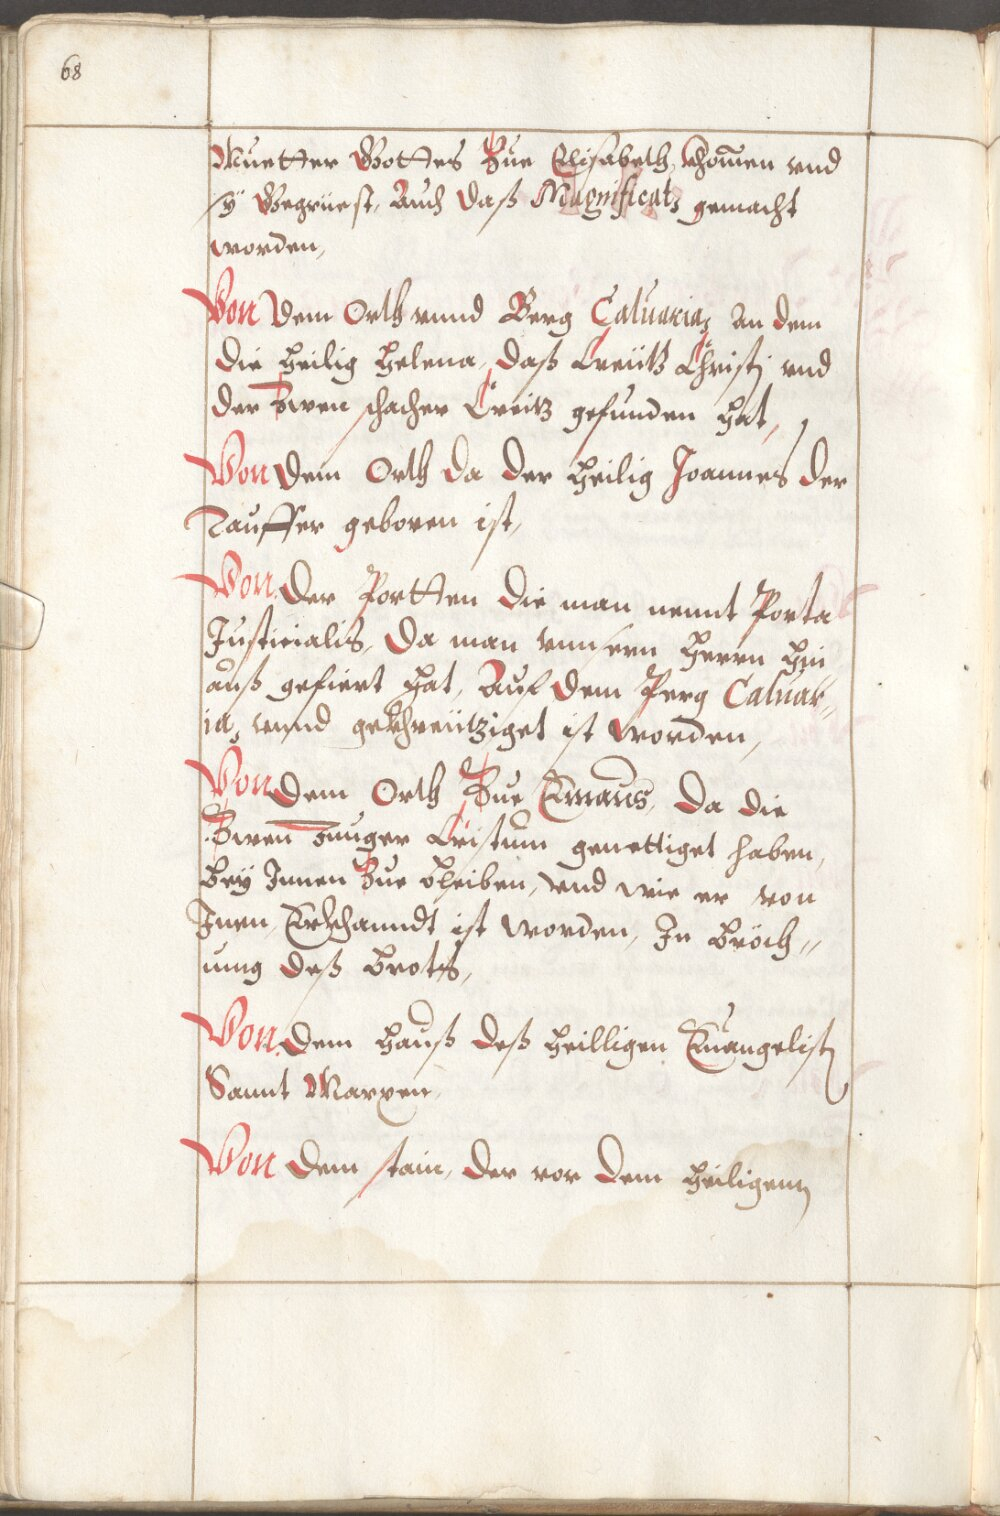 68
Muetter Gottes Zue Elisabeth, khomen vnd
sÿ Begrüest, Auch daß Magnificat, gemacht
worden,
Von dem Orth vnnd Berg Caluaria, an dem
die heilig Helena, daß Creütz Christj vnd
der Zwen schacher Creitz gefunden hat,
Von dem Orth da der heilig Joannes der
Tauffer geboren ist,
Von der Portten die man nennt Porta
Justicialis, da man vnnsern herrn hin
auß gefiert hat, Auf dem Perg Caluar=
ia, vnnd gekhreützigét ist worden,
Von dem Orth Zue Emaus, da die
Zwen Junger Cristum genettiget haben,
beÿ Innen Zue bleiben, vnd wie er von
Inen, Erkhanndt ist worden, In Bröch=
ung deß Brots,
Von dem hauß deß heilligen Euangelistj
Sannt Marxen,
Von dem stain, der vor dem heiligenn